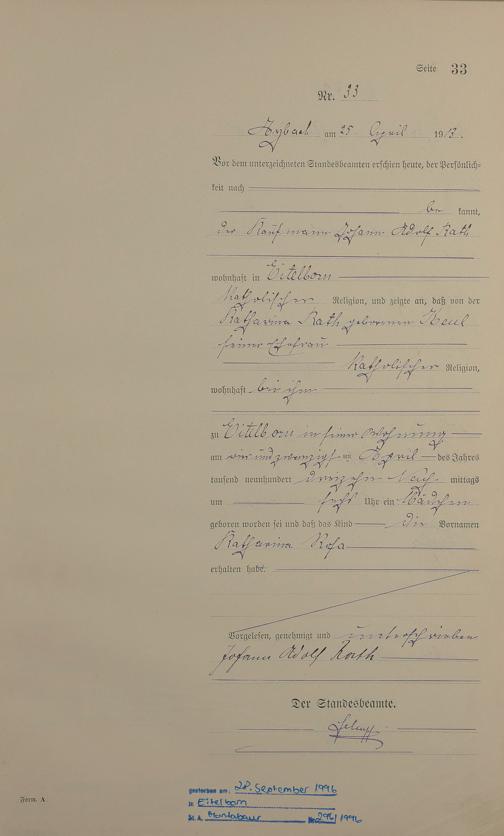 Seite 33
Nr. 33
am 25 April 1913.
Vor dem unterzeichneten Standesbeamten erschien heute, der Persönlich-
keit nach
be kannt,
der Kaufmann Johann Adolf Rath
wohnhaft in Eitelborn
katholischer Religion, und zeigte an, daß von der
Katharina Rath geborenen Keul
seiner Ehefrau
katholischer Religion,
wohnhaft bei ihm
zu Eitelborn in seiner Wohnung
am April des Jahres
tausend neunhundert dreizehn Nach mittags
um sechs Uhr ein Mädchen
geboren worden sei und daß das Kind die Vornamen
Katharina Rosa
erhalten habe.
Vorgelesen, genehmigt und unterschrieben
Johann Adolf Rath
Der Standesbeamte.
gestorben am: 28. September 1996
in Eitelborn
St. A. Montabaur Nr. 296/1996
Form. A